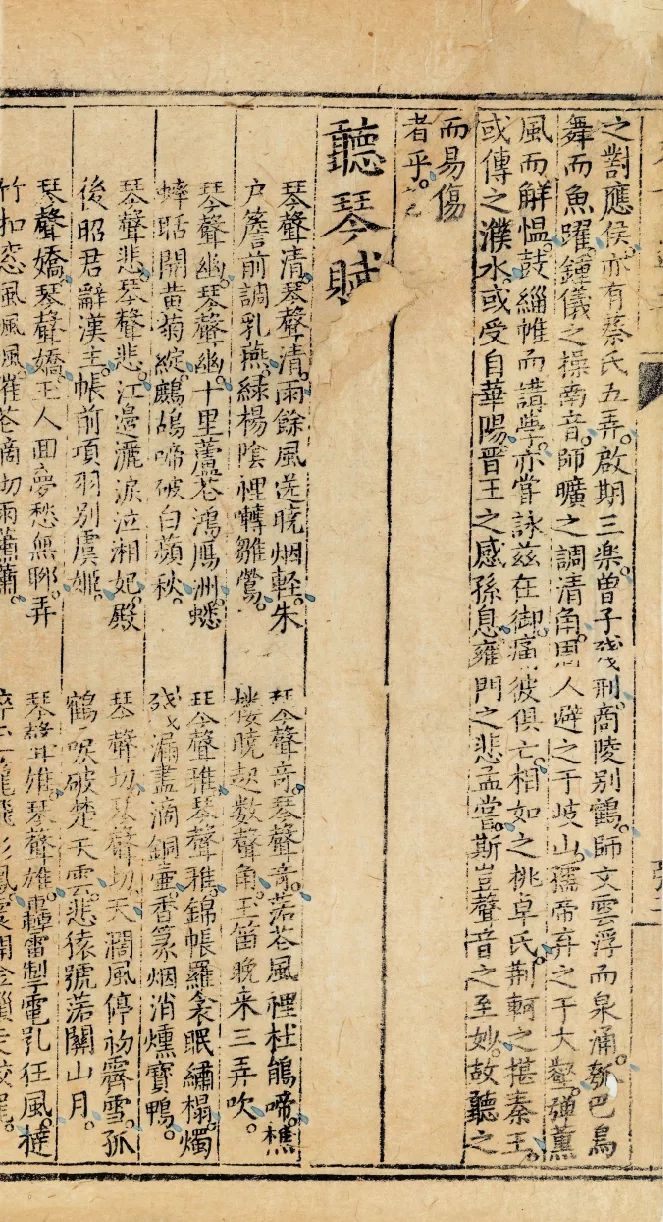 之對應侯。亦有蔡氏五弄。啟期三楽。曽子残刑。商陵別鶴。師文雲浮而泉涌。瓠巴鳥
舞而魚躍。鍾儀之操南音。師曠之調清角。周人避之于岐山。孺帝弃之于大壑。弹薫
風而解愠。鼓緇帷而講學。亦嘗詠茲在御。痛彼俱亡。相如之桃卓氏。荆軻之揕秦王。
或傳之濮水。或受自華陽。晋王之感孫息。雍門之悲孟嘗。斯豈聲音之至妙。故聽之
而易傷
者乎。
聽琴賦
琴聲清。琴聲清。雨餘風送晩烟軽。朱
户簷前調乳燕。緑楊陰裡囀雛鶯。
琴聲幽。琴聲幽。十里蘆花鴻鴈洲。蟋
蟀聒開黄菊綻。鷓鴣啼破白蘋秋。
琴聲悲。琴聲悲。江邊灑淚泣湘妃。殿
後昭君辭漢主。帳前項羽别虞姬。
琴聲嬌。琴聲嬌。王人回夢愁無聊。弄
竹扣窓風風風。催花滴切雨蕭蕭。
琴聲竒。琴聲竒。落花風裡杜鵑啼。樵
楼暁起数聲角。玉笛晩来三弄吹。
琴聲雅。琴聲雅。錦帳羅衾眠繡榻。燭
残漏盡滴銅壷。香篆烟消燻寶鴨。
琴聲切。琴聲切。天濶風停初霽雪。孤
鶴唳破楚天雲。悲猿號落關山月。
琴聲雄。琴聲雄。轟雷掣電乳狂風。撻